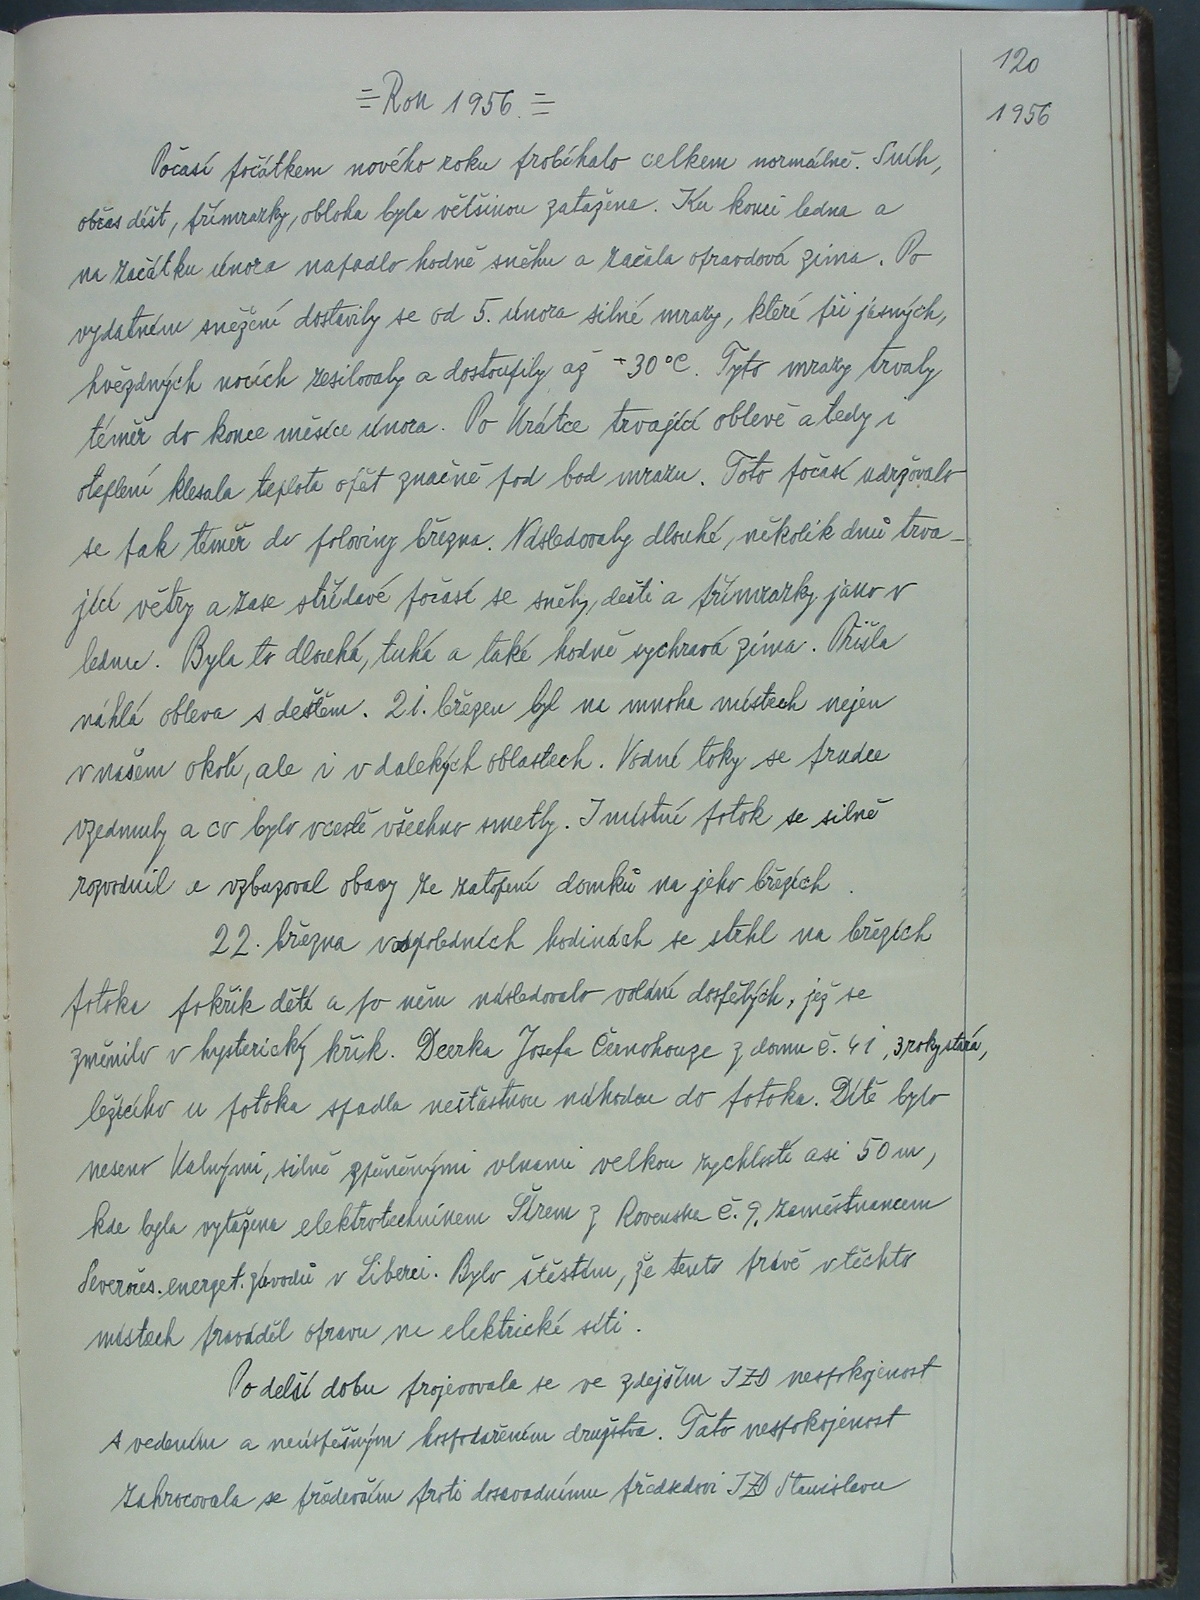 120
1956
= Rok 1956. =
Počasí počátkem nového roku probíhalo celkem normálně. Sníh,
občas déšt, přímrazky, obloha byla většinou zatažena. Ku konci ledna a
na začátku února napadlo hodně sněhu a začala opravdová zima. Po
vydatném sněžení dostavily se od 5. února silné mrazy, které při jasných,
hvězdných nocích zesilovaly a dostoupily až -30°C. Tyto mrazy trvaly
téměř do konce měsíce února. Po krátce trvající oblevě a tedy i
oteplení klesala teplota opět značně pod bod mrazu. Toto počasí udržovalo
se pak téměř do poloviny března. Následovaly dlouhé, několik dnů trva-
jící větry a zase střídavé počasí se sněhy, dešti a přímrazky jako v
lednu. Byla to dlouhá, tuhá a také hodně sychravá zima. Přišla
náhlá obleva s deštěm. 21. březen byl na mnoha místech nejen
v našem okolí, ale i v dalekých oblastech. Vodní toky se prudce
vzedmuly a co bylo v cestě všechno smetly. I místní potok se silně
rozvodnil a vzbuzoval obavy ze zatopení domků na jeho březích.
22. března v odpoledních hodinách se strhl na březích
potoka pokřik dětí a po něm následovalo volání dospělých, jež se
změnilo v hysterický křik. Dcerka Josefa Černohouze z domu č. 41, 3 roky stará,
ležícího u potoka spadla nešťastnou náhodou do potoka. Dítě bylo
neseno kalnými, silně zpěněnými vlnami velkou rychlostí asi 50 m,
kde byla vytažena elektrotechnikem z Rovenska č. 9, zaměstnancem
Severočes. energet. závodů v Liberci. Bylo štěstím, že tento právě v těchto
místech prováděl opravu na elektrické síti.
Po delší dobu projevovala se ve zdejším JZD nespokojenost
s vedením a neúspěšným hospodařením družstva. Tato nespokojenost
zahrocovala se především proti dosavadnímu předsedovi JZD Stanislavu